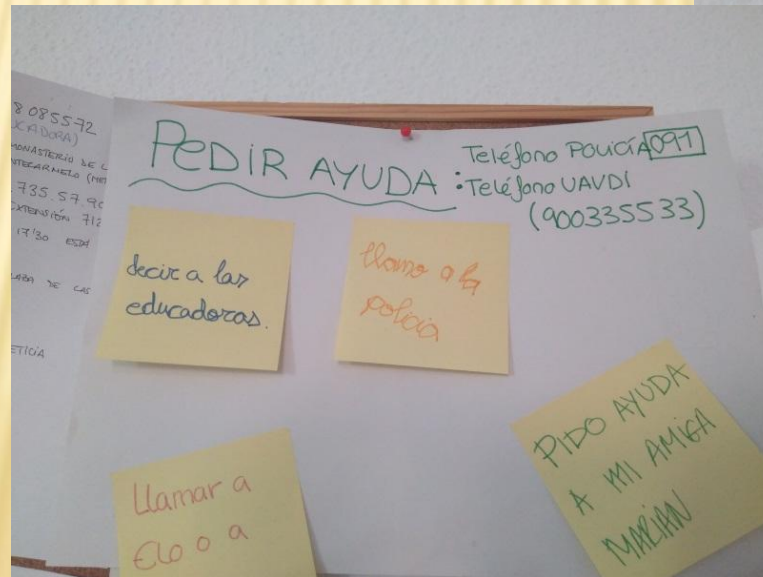 8 085572
CADORA)
MONASTERIO DE L
NTECARMELO (MET
.735.57.90
EXTENSIÓN 712
17'30
DE LAS
ETICIA
PEDIR AYUDA :
Teléfono POLICÍA 091
Teléfono UAVDI
(900335533)
decir a las
educadoras.
llamo a la
policía
PIDO AYUDA
A MI AMIGA
MARIAN
Llamar a
Elo o a